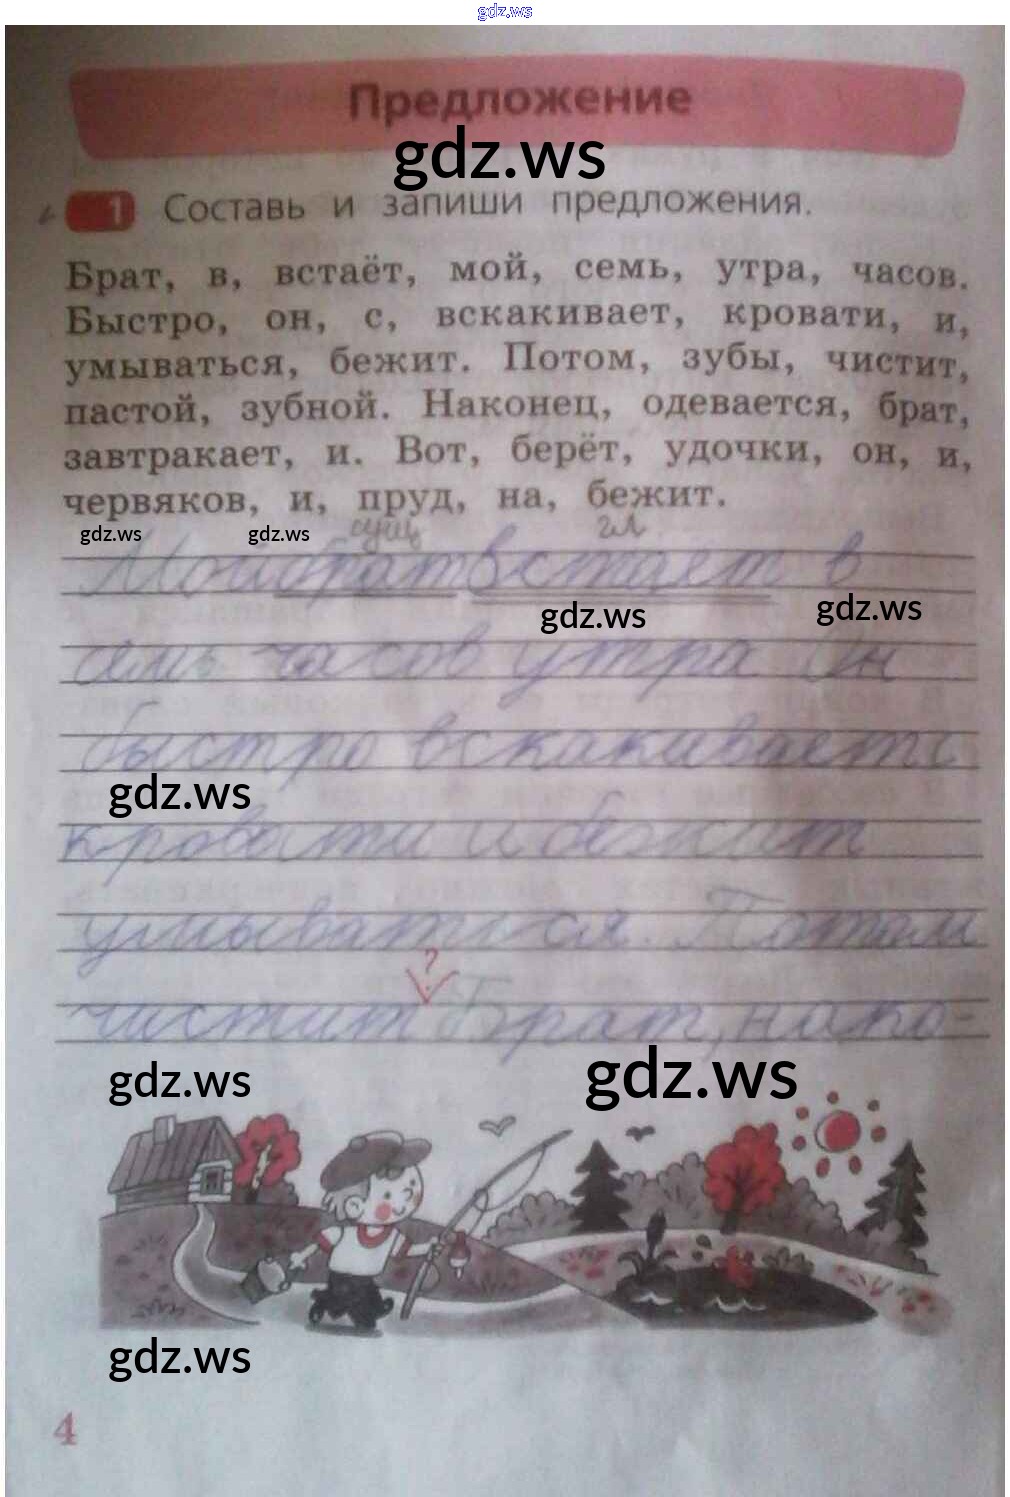 gdz.ws
Предложение
gdz.ws
1 Составь и запиши предложения.
Брат, в, встаёт, мой, семь, утра, часов.
Быстро, он, с, вскакивает, кровати, и,
умываться, бежит. Потом, зубы, чистит,
пастой, зубной. Наконец, одевается, брат,
завтракает, и. Вот, берёт, удочки, он, и,
червяков, и, пруд, на, бежит.
сущ гл.
gdz.ws gdz.ws
Мой брат встает в
gdz.ws gdz.ws
семь часов утра Он
быстро вскакивает с
gdz.ws
кровати и бежит
умываться. Потом
?
чистит Брат, нако-
gdz.ws gdz.ws
gdz.ws
4